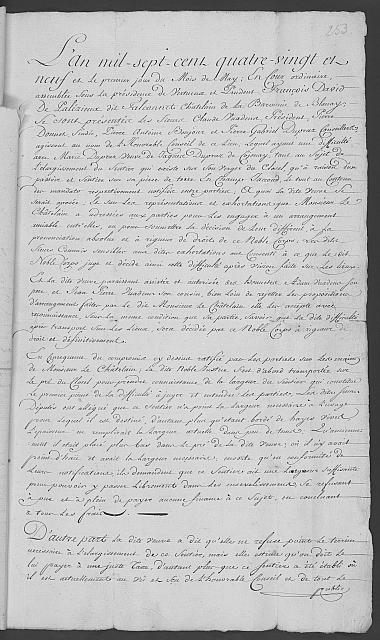 253
L'an mil-sept-cent quatre-vingt et
neuf et le premier jour du Mois de May; En Cour ordinaire,
assemblée sous la présidence de Vertueux et Prudent François David
De Palézieux dit Falconnet Chatelain de la Baronnie de Blonay;
Se sont présentés les Sieurs Claude Président, Pierre
Bonnet Sindic, Pierre Antoine Bonjour et Pierre Gabriel Dupraz Conseillers
agissant au nom de l'Honorable Conseil de ce Lieu, lequel ayant une difficulté
avec Marie Dupraz Veuve de Jaques Dupraz de Cojonay, tant au Sujet de
l'elargissement du Sentier qui existe sur son Verger du Clos qu'à raison du
passage et Sentier sur sa pièce de terre En Champ le tout au contenu
du mandat respectivement notifié entre parties, Et quoi la dite Veuve Se
serait opposée, Et sur les représentations et exhortations que Monsieur Le
Châtelain a adressées aux parties pour les engager à un arrangement
amiable entr'elles, ou pour soumettre la décision de leur différent à la
prononciation absolue et à rigueur de droits de ce Noble Corps, les dits
Sieurs Commis sensibles aux dites exhortations ont Consenti à ce que le dit
Noble Corps juge et décide ainsi cette difficulté après Vision faite sur les lieux.
Et la dite Veuve paraissant assistée et autorisée des
et Jean Pierre son cousin bien loin de rejetter les propositions
d'arrangement faites par le dit Monsieur Le Châtelain elle les accepte avec
reconnaissance sous la même condition que Sa partie, Savoir que la dite difficulté
après transport sur les lieux sera décidée par ce Noble Corps à rigueur de
droit et définitivement.
En Consequence du compromis cy dessus ratifié par les parties sur les mains
de Monsieur le Châtelain, la dite Noble Justice s'est d'abord transportée sur
le pré du Clos pour prendre connaissance de la largeur du Sentier qui constitue
le premier point de la difficulté à juger et entendre les parties. Les dits Sieurs
Députés ont allégué que ce Sentier n'a point la largeur nécessaire à l'usage
pour lequel il est destiné, d'autant plus qu'étant bordé de hayes vives
l'épaisseur en remplirait la largeur actuelle dans peu de temps. Qu'anciennement
il était placé plus bas dans le pré de la dite Veuve où il n'y avait
point d'haie et avait la largeur nécessaire, ensorte qu'en conformité de
leur notification ils demandent que ce Sentier ait une Largeur suffisante
pour pouvoir y passer librement dans les Se refusant
à pur et à plein de payer aucune finance à ce Sujet, en concluant
à tous les frais.
D'autre part la dite Veuve a dit qu'elle ne refuse point le terrein
nécessaire à l'elargissement de ce Sentier, mais elle estime qu'on doit le
lui payer à une juste Taxe, d'autant plus que ce sentier a été établi où
il est actuellement au Vû et Sçu de l'honorable Conseil et de tout le
public